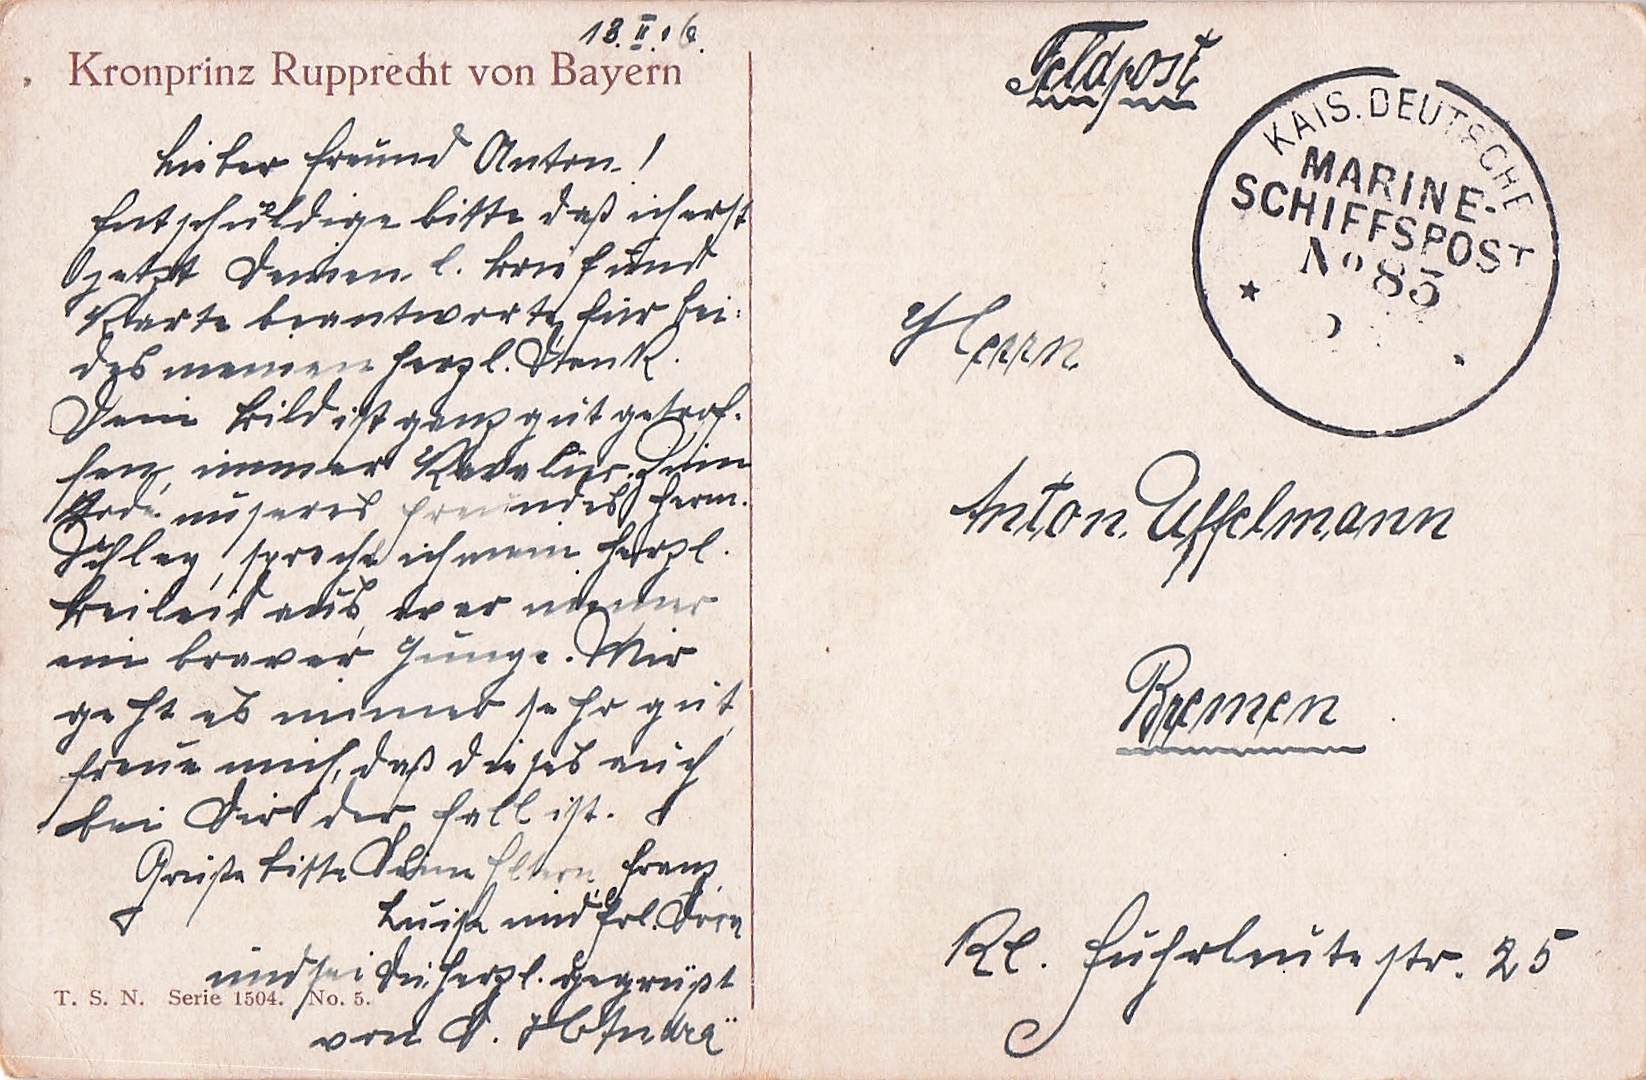 18.II.16.
Kronprinz Rupprecht von Bayern
Lieber Freund Anton!
Entschuldige bitte daß ich erst
jetzt Deinen l. Brief und
Karte beantworte, für bei-
des meinen herzl. Dank.
Dein Bild ist ganz gut getrof-
fen, immer Kavalier. Zum
Tode unseres Freundes Herm.
Schley, spreche ich mein herzl.
Beileid aus, war immer
ein braver Junge. Mir
geht es immer sehr gut,
freue mich, daß dieses auch
bei Dir der Fall ist.
Grüße bitte Deine Eltern, Franz,
Luise und Frl. Dora
und sei Du herzl. gegrüßt
von D.
T. S. N. Serie 1504. No. 5.
Feldpost
KAIS. DEUTSCHE
MARINE-
SCHIFFSPOST
No 85
Herrn
Anton Uffelmann
Bremen
Kl. Fuhrleutestr. 25